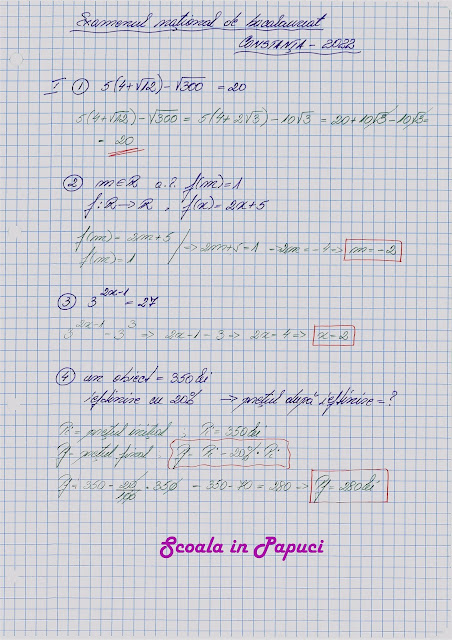 Examenul național de bacalaureat
CONSTANȚA - 2022
I ① 5(4+√12)-√300 = 20
5(4+√12)-√300 = 5(4+2√3)-10√3 = 20+10√3-10√3=
= 20
② m∈R a.î. f(m)=1
f:R→R, f(x)=2x+5
f(m)=2m+5
f(m)=1 => 2m+5=1 => 2m=-4 => m=-2
③ 3^(2x-1)=27
3^(2x-1)=3^3 => 2x-1=3 => 2x=4 => x=2
④ un obiect = 350 lei
ieftinire cu 20% → prețul după ieftinire=?
Pi = prețul inițial ; Pi = 350 lei
Pf = prețul final ; Pf = Pi - 20%·Pi
Pf = 350 - 20/100 · 350 = 350-70 = 280 => Pf = 280 lei
Scoala in Papuci